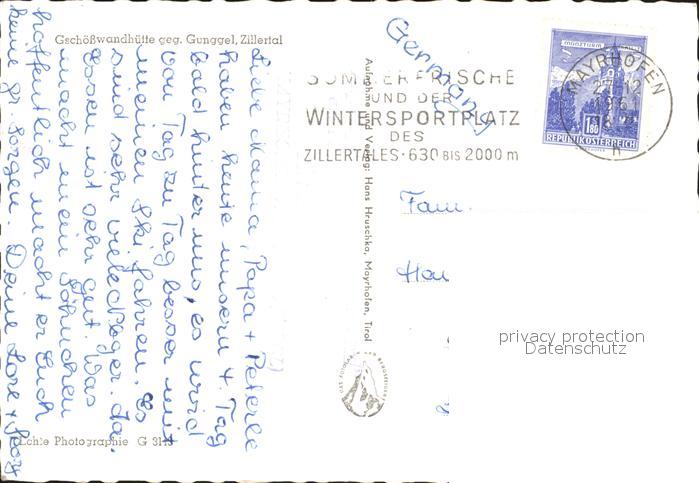 Gschößwandhütte geg. Gunggel, Zillertal
Liebe Mama, Papa + Peterle
haben heute unsern 4. Tag
bald hinter uns, es wird
von Tag zu Tag besser mit
meinen Ski fahren. Es
sind sehr viele Pleger. da.
Essen ist sehr gut. Was
macht mein Söhnchen
hoffentlich macht er Euch
keine gr. Sorgen. Deine Lore +
Echte Photographie G 31
Aufnahme und Verlag: Hans Hruschka, Mayrhofen, Tirol
Germany
SOMMERFRISCHE
UND DER
WINTERSPORTPLATZ
DES
ZILLERTALES · 630 BIS 2000 m
MAYRHOFEN
27.12
1961
MÜNZTURM
1.80
REPUBLIK ÖSTERREICH
Fam.
Hau
privacy protection
Datenschutz